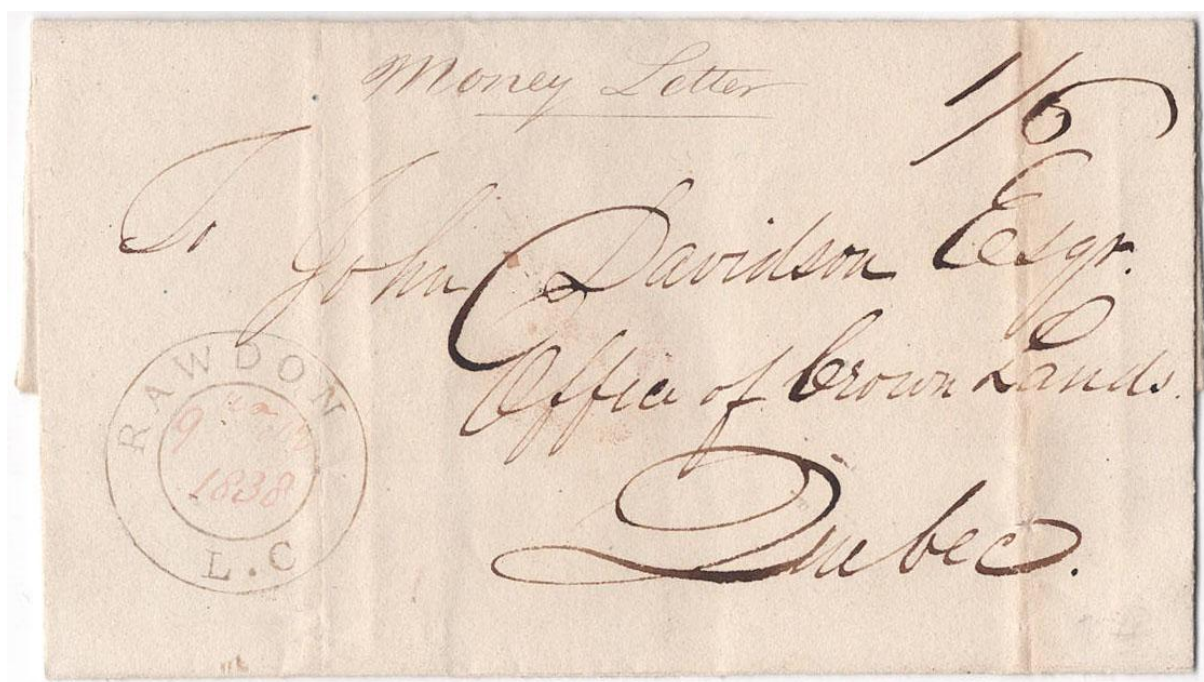 Money Letter
1/6
To
John Davidson Esqr.
Office of Crown Lands.
Quebec.
RAWDON
9
1838
L.C